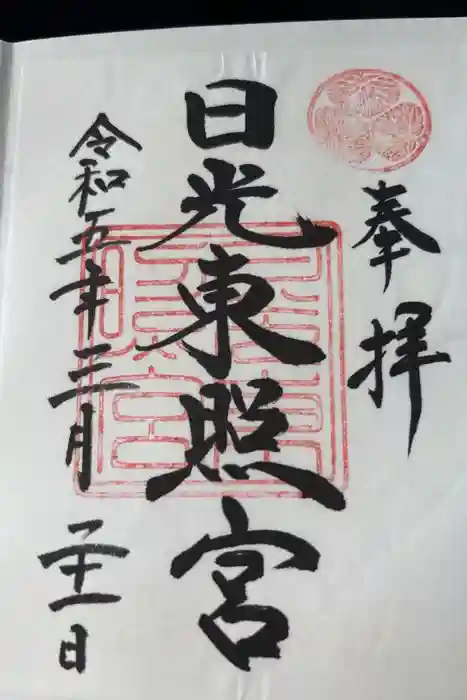 奉拝
日光東照宮
令和五年三月二十一日